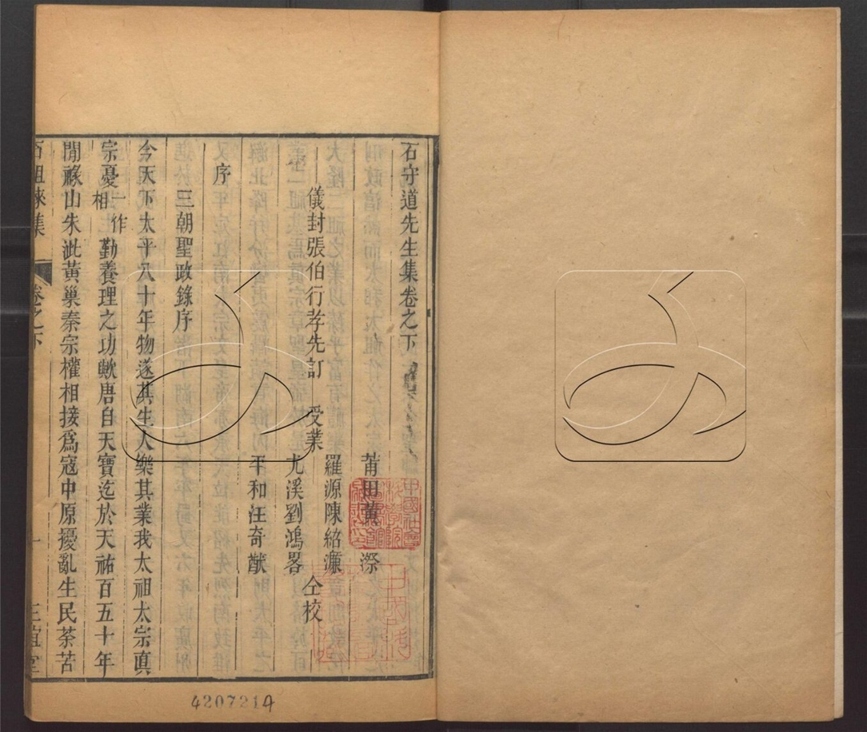 石守道先生集卷之下
莆田黃㵗
儀封張伯行孝先訂 受業
羅源陳紹濂
尤溪劉鴻畧
仝校
平和汪奇猷
序
三朝聖政錄序
今天下太平八十年物遂其生人樂其業我太祖太宗真
宗憂一作相勤養理之功歟唐自天寶迄於天祐百五十年
間祿山朱泚黃巢秦宗權相接為寇中原擾亂生民荼苦
石徂徠集
卷之下
一
正誼堂
4207214